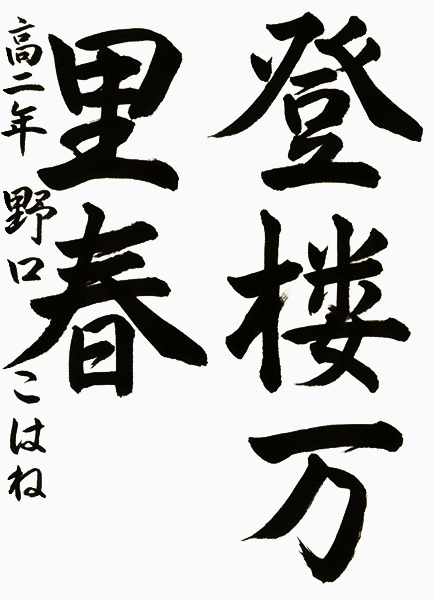 登楼万
里春
高二年 野口 こはね